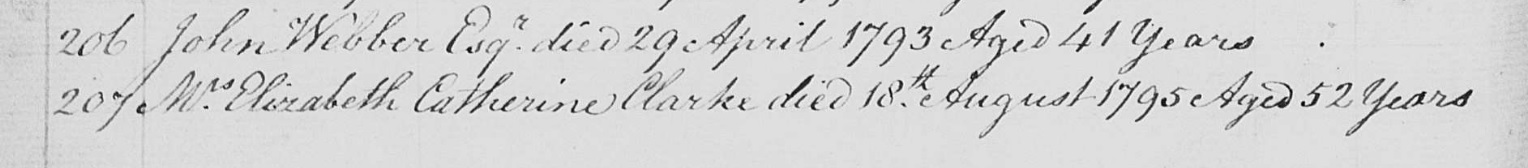 206 John Webber Esqr. died 29 April 1793 Aged 41 Years
207 Mrs Elizabeth Catherine Clarke died 18th August 1795 Aged 52 Years